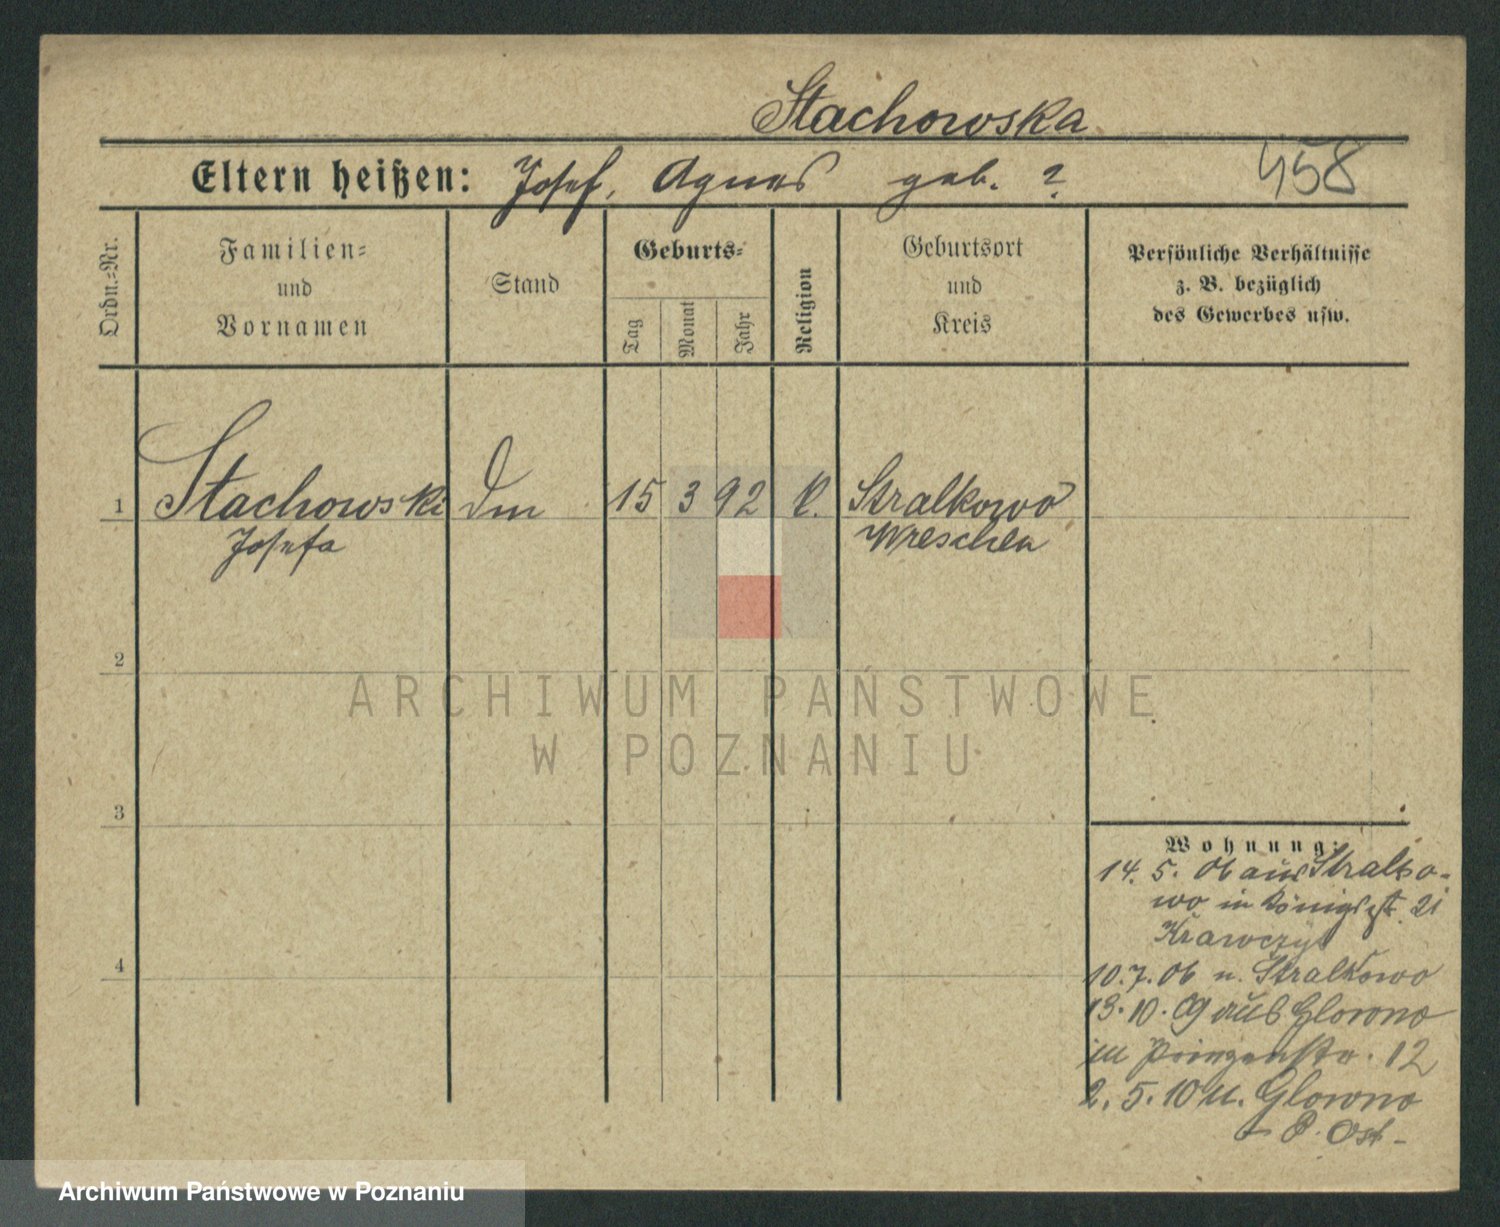 Stachowska
Eltern heißen: Josef, Agnes geb. ?
458
Ordn.=Nr.
Familien=
und
Vornamen
Stand
Geburts=
Tag
Monat
Jahr
Religion
Geburtsort
und
Kreis
Persönliche Verhältnisse
z. B. bezüglich
des Gewerbes usw.
1 Stachowski Dm 15 3 92 k. Stralkowo
Josefa Wreschen
2
3
4
ARCHIWUM PAŃSTWOWE
W POZNANIU
Wohnung:
14. 5. 06 aus Stralko-
wo in Königsstr. 21
Krawczyk
10. 7. 06 n. Stralkowo
13. 10. 09 aus Glowno
in Prinzenstr. 12
2. 5. 10 n. Glowno
P. Ost-
Archiwum Państwowe w Poznaniu